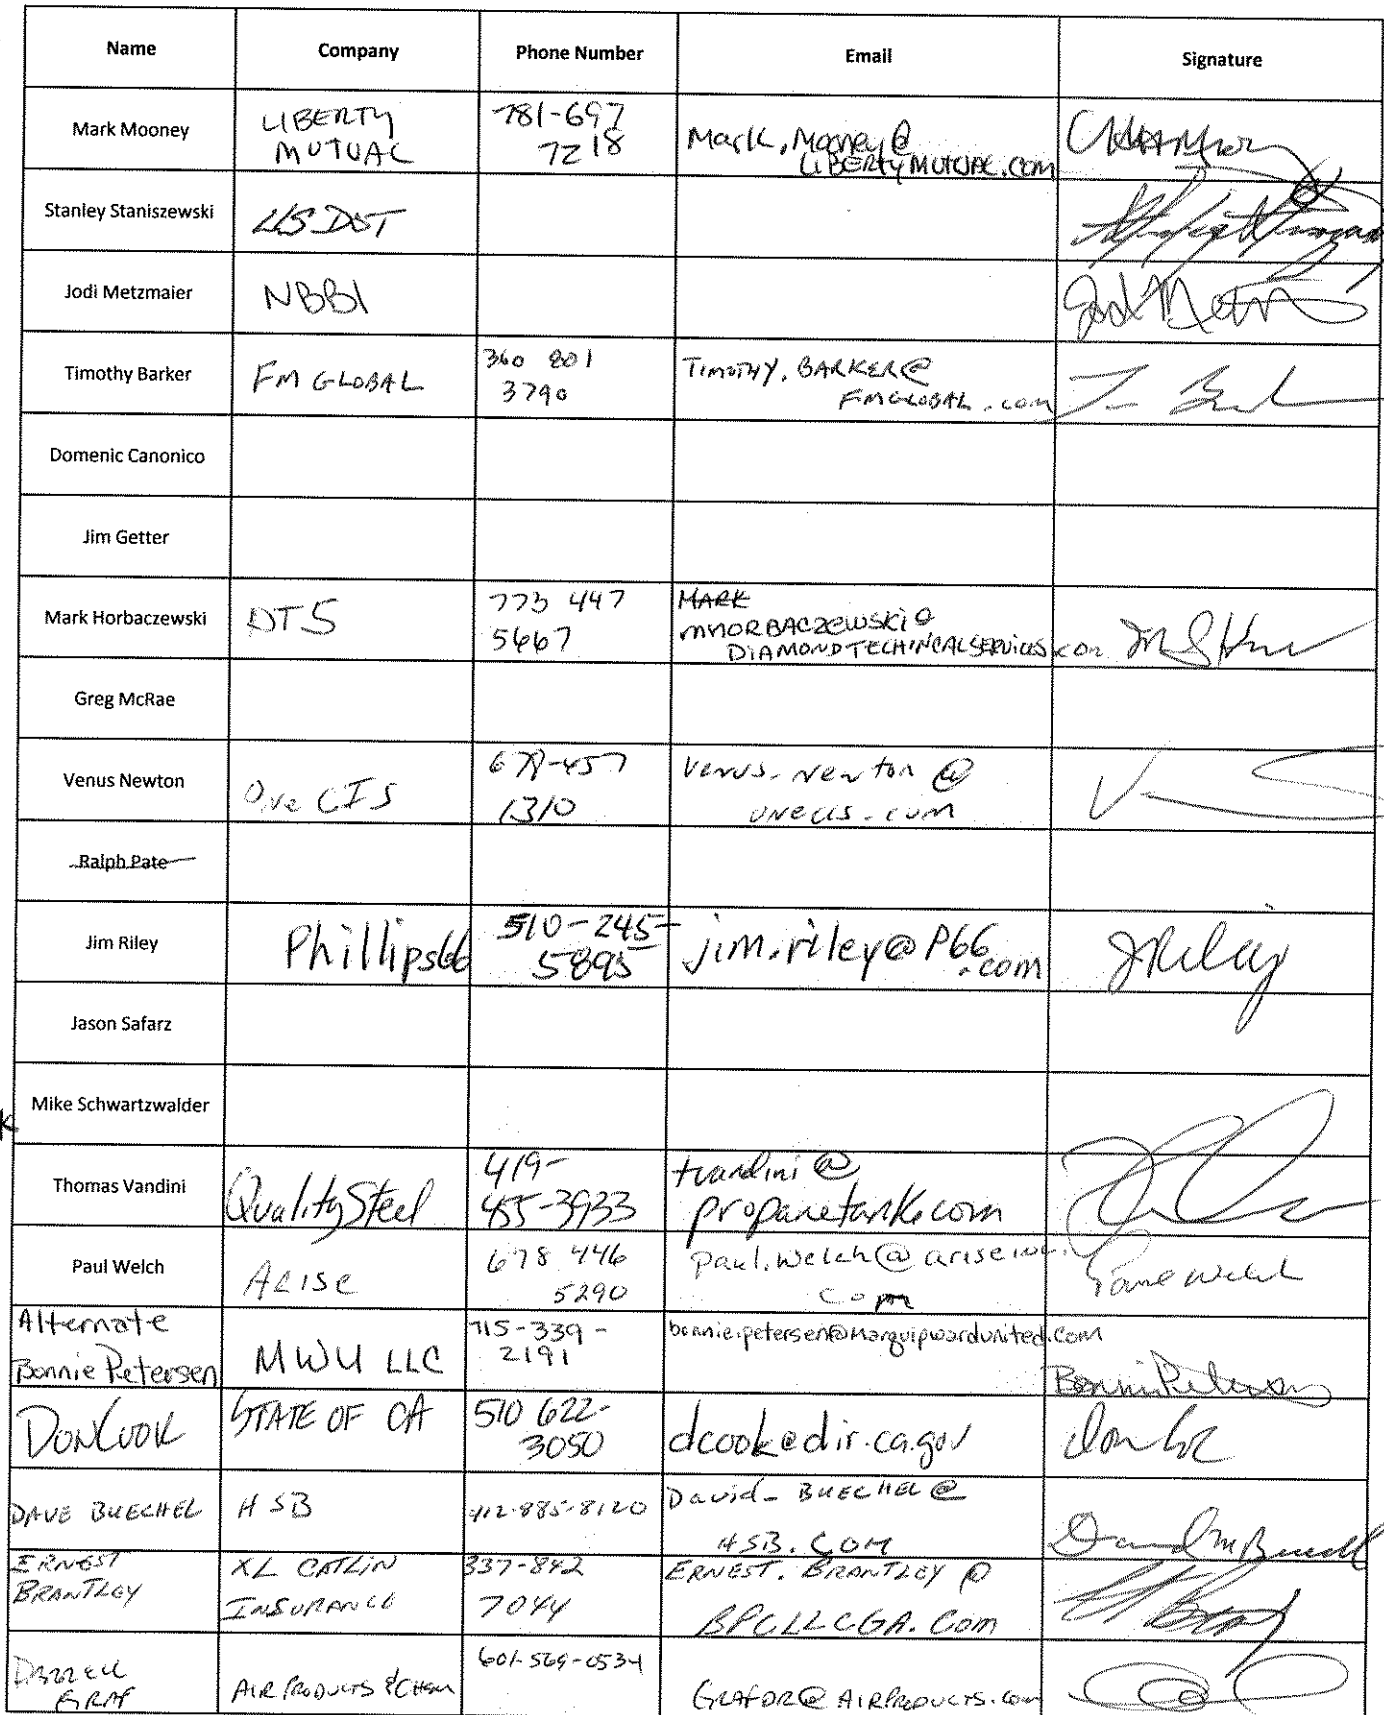 Name Company Phone Number Email Signature
Mark Mooney LIBERTY MUTUAL 781-697 7218 Mark.Mooney@ LIBERTYMUTUAL.COM
Stanley Staniszewski US DOT
Jodi Metzmaier NBBI
Timothy Barker FM GLOBAL 360 801 3790 TIMOTHY.BARKER@ FMGLOBAL.com
Domenic Canonico
Jim Getter
Mark Horbaczewski DTS 773 447 5667 MARK
MHORBACZEWSKI@
DIAMONDTECHINCALSERVICES.COM
Greg McRae
Venus Newton One CIS 1310 Venus.Newton@
onecis.com
Ralph Pate
Jim Riley Phillips66 510-245-
5895 jim.riley@P66
.com JRiley
Jason Safarz
Mike Schwartzwalder
Thomas Vandini Quality Steel 419-
455-3933 tvandini@
propanetank.com
Paul Welch ARISE 678 446
5290 paul.welch@ariseinc.
com Paul Welch
Alternate
Bonnie Petersen MWU LLC 715-339-
2191 bonnie.petersen@marquipwardunited.com
Bonnie Petersen
Don Cook STATE OF CA 510 622-
3050 dcook@dir.ca.gov Don Cook
DAVE BUECHEL HSB 412-885-8120 David_BUECHEL@
HSB.COM David M Buechel
ERNEST
BRANTLEY XL CATLIN
INSURANCE 337-842
7044 ERNEST.BRANTLEY@
BPCLLCGA.Com
GRAF AIR PRODUCTS & CHEM 601-569-0534
GRAFDR@AIRPRODUCTS.com